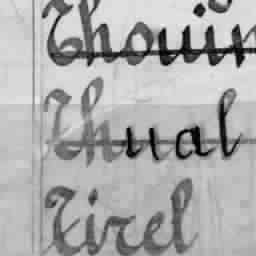 Thouin
Thual
Tirel